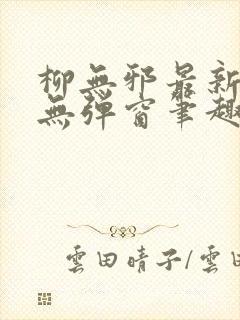 柳無邪最新
無彈窗筆趣
雲田晴子/雲田